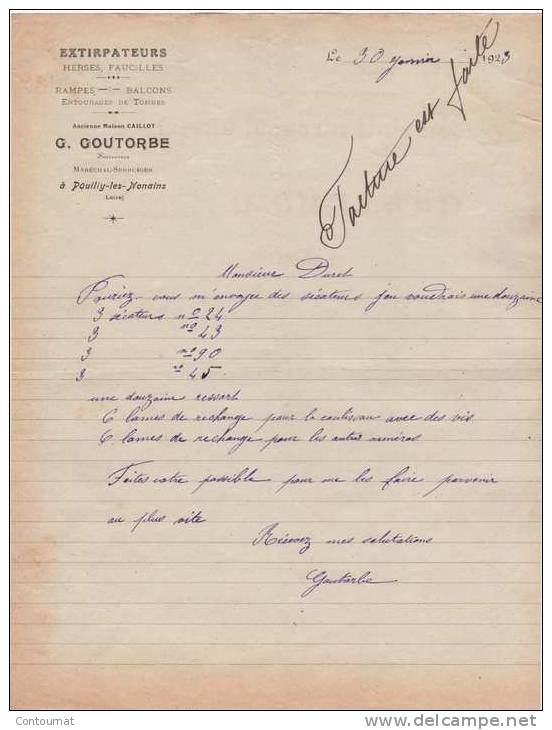 EXTIRPATEURS
HERSES, FAUCILLES
RAMPES BALCONS
ENTOURAGES DE TOMBES
Ancienne Maison CAILLOT
G. GOUTORBE
Successeur
MARÉCHAL-SERRURIER
à Pouilly-les-Nonains
(LOIRE)
Le 30 Janvier 1923
Facture est faite
Monsieur Duret
Pouriez-vous m'envoyer des sécateurs j'en voudrais une douzaine
3 sécateurs no 24
3 no 43
3 no 90
3 no 45
une douzaine ressort
6 lames de rechange pour le coulisseau avec des vis
6 lames de rechange pour les autres numéros
Faites votre possible pour me les faire parvenir
au plus vite
Recevez mes salutations
Goutorbe
Contournat
www.delcampe.net